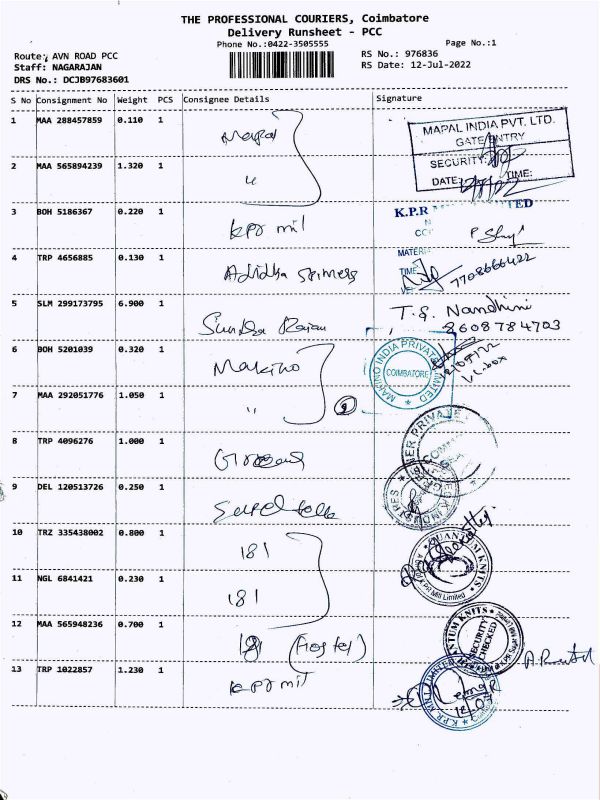 THE PROFESSIONAL COURIERS, Coimbatore
Delivery Runsheet - PCC
Phone No.:0422-3505555
Page No.:1
Route: AVN ROAD PCC
RS No.: 976836
Staff: NAGARAJAN
RS Date: 12-Jul-2022
DRS No.: DCJB97683601
S No Consignment No Weight PCS Consignee Details Signature
1 MAA 288457859 0.110 1 Mapal
MAPAL INDIA PVT. LTD.
GATE ENTRY
SECURITY:
DATE: TIME:
2 MAA 565894239 1.320 1 "
3 BOH 5186367 0.220 1 kpr mil
K.P.R
4 TRP 4656885 0.130 1
MATERI
TIME
7708666422
5 SLM 299173795 6.900 1 Sundra Rajan
T.S. Nandhini
8608784703
6 BOH 5201039 0.320 1 Makino
MAKINO INDIA PRIVATE LIMITED
COIMBATORE
7 MAA 292051776 1.050 1 "
8 TRP 4096276 1.000 1
9 DEL 120513726 0.250 1
10 TRZ 335438002 0.800 1 181
QUANTUM KNITS
K.P.R Mill Limited
11 NGL 6841421 0.230 1 181
12 MAA 565948236 0.700 1 181 (Hostel)
SECURITY
CHECKED
13 TRP 1022857 1.230 1 kpr mil
K.P.R. MILL LIMITED